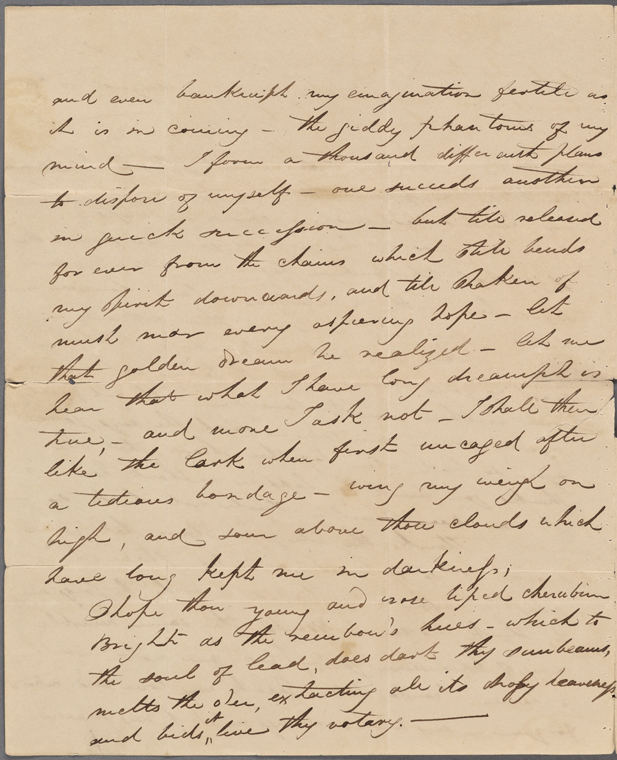 and even bankrupt my imagination fertile as
it is in coining – the giddy phantoms of my
mind — I form a thousand different plans
to dispose of myself – one succeeds another
in quick succession – but till released
for ever from the chains which still bends
my spirit downwards, and till shaken off
must mar every aspiering hope – let
that golden dream be realized – let me
hear that what I have long dreamph is
true, – and more I ask not – I shall then
like the Lark when first uncaged after
a tedious bondage – wing my weigh on
high, and soar above those clouds which
have long kept me in darkness;
O hope thou young and rose liped cherubim
Bright as the reinbow's hues – which to
the soul of lead, does dart thy sunbeams,
melts the oer, extracting all its drossy heaveness.
and bids it live thy votary. —